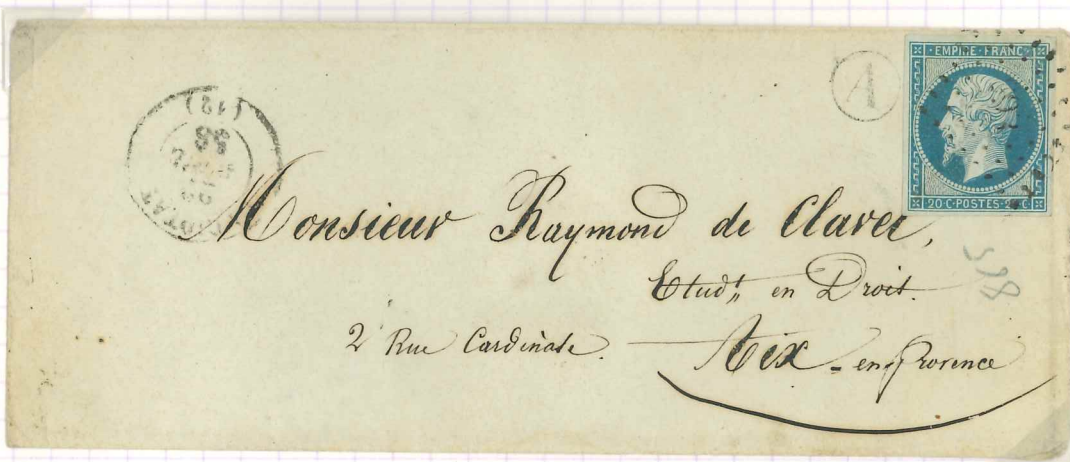 EMPIRE FRANC
20 C·POSTES·20 C
A
(12)
Monsieur Raymond de Claret,
Etudt en Droit.
2 Rue Cardinale.
Aix - en Provence